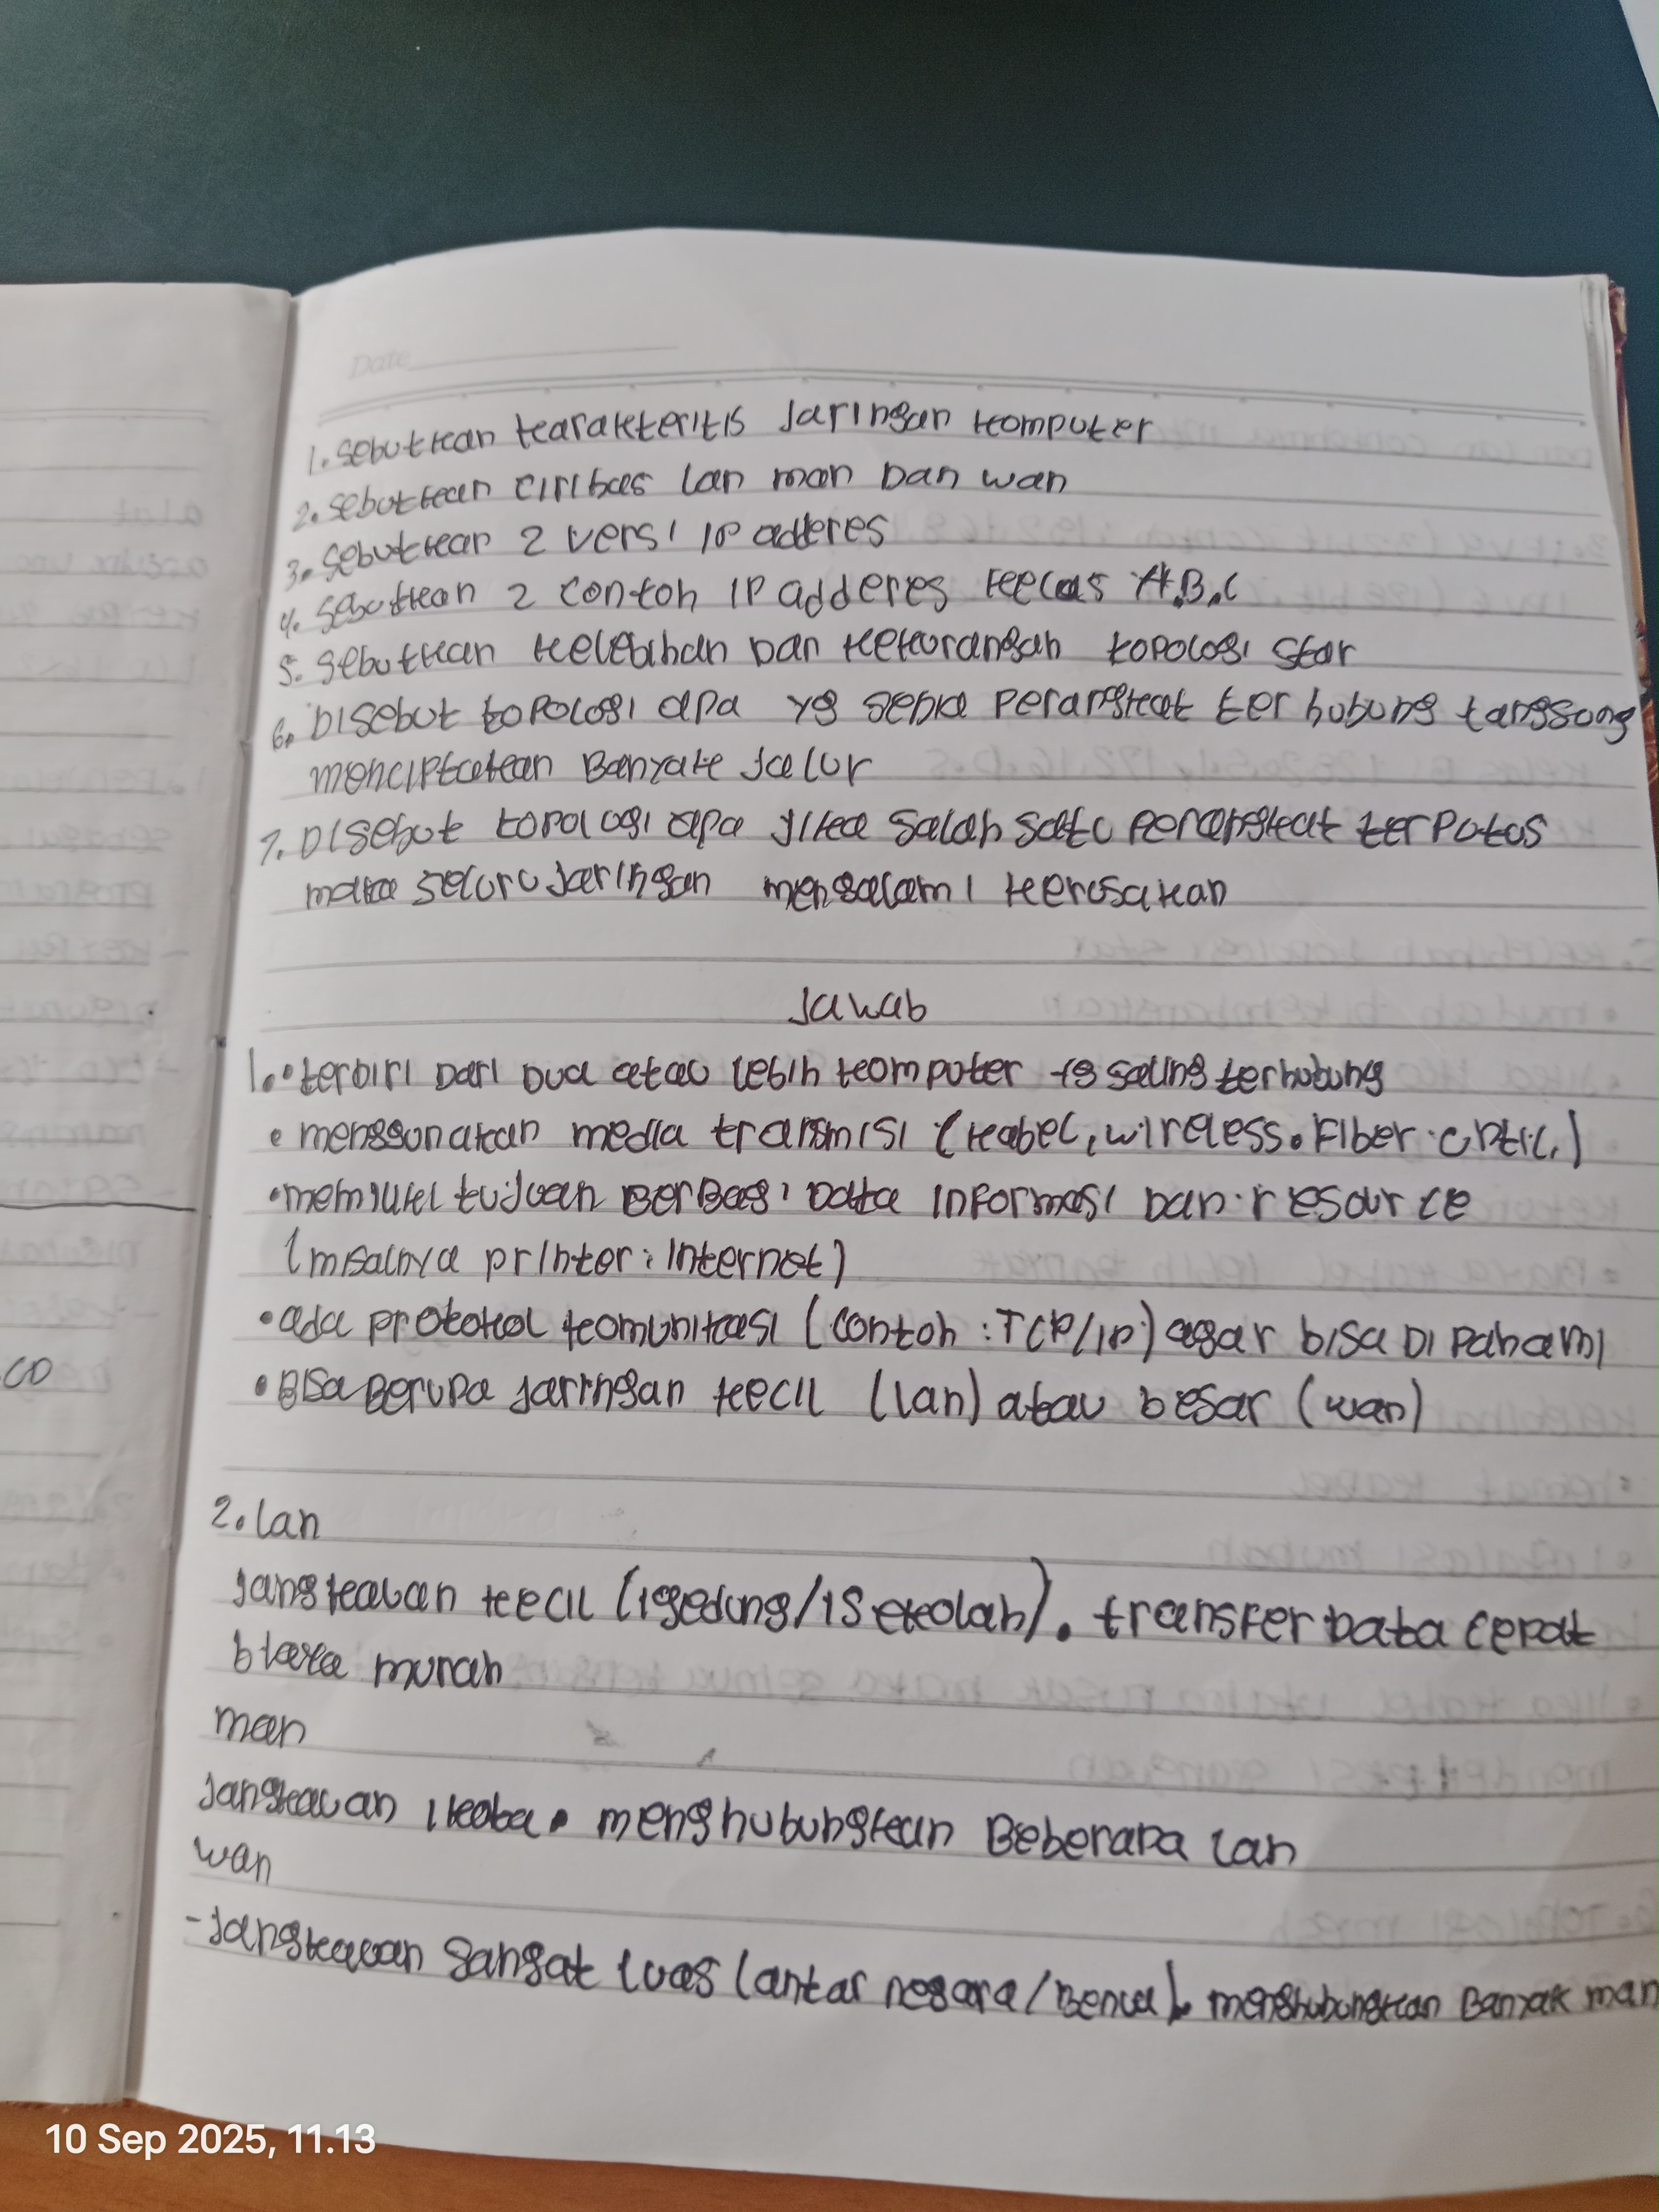 Date
1. Sebutkan karakteritis Jaringan komputer
2. Sebutkan ciri kas lan man Dan wan
3. Sebutkan 2 versi IP adderes
4. Sebutkan 2 contoh IP adderes kelas A.B.C
5. Sebutkan kelebihan Dan kekurangan topologi star
6. Disebut topologi apa yg setia perangkat ter hubung langsung
menciptakan Banyak Jalur
7. Disebut topologi apa jika salah satu perangkat terputus
maka seluru Jaringan mengalami kerusakan
Jawab
1. • terdiri Dari Dua atau lebih komputer yg saling terhubung
• menggunakan media transmisi (kabel, wireless. Fiber optic,)
• memiliki tujuan BerBagi Data informasi Dan resource
(misalnya printer: internet)
• ada protokol komunikasi (contoh : TCP/IP) agar bisa Di Pahami
• Bisa Berupa Jaringan kecil (lan) atau besar (wan)
2. lan
Jangkauan kecil (1gedung/1Sekolah). transfer Data cepat
biaya murah
man
Jangkauan 1 koba. menghubungkan Beberapa lan
wan
- Jangkauan sangat luas (antar negara/Benua). menghubungkan Banyak man
CO
10 Sep 2025, 11.13